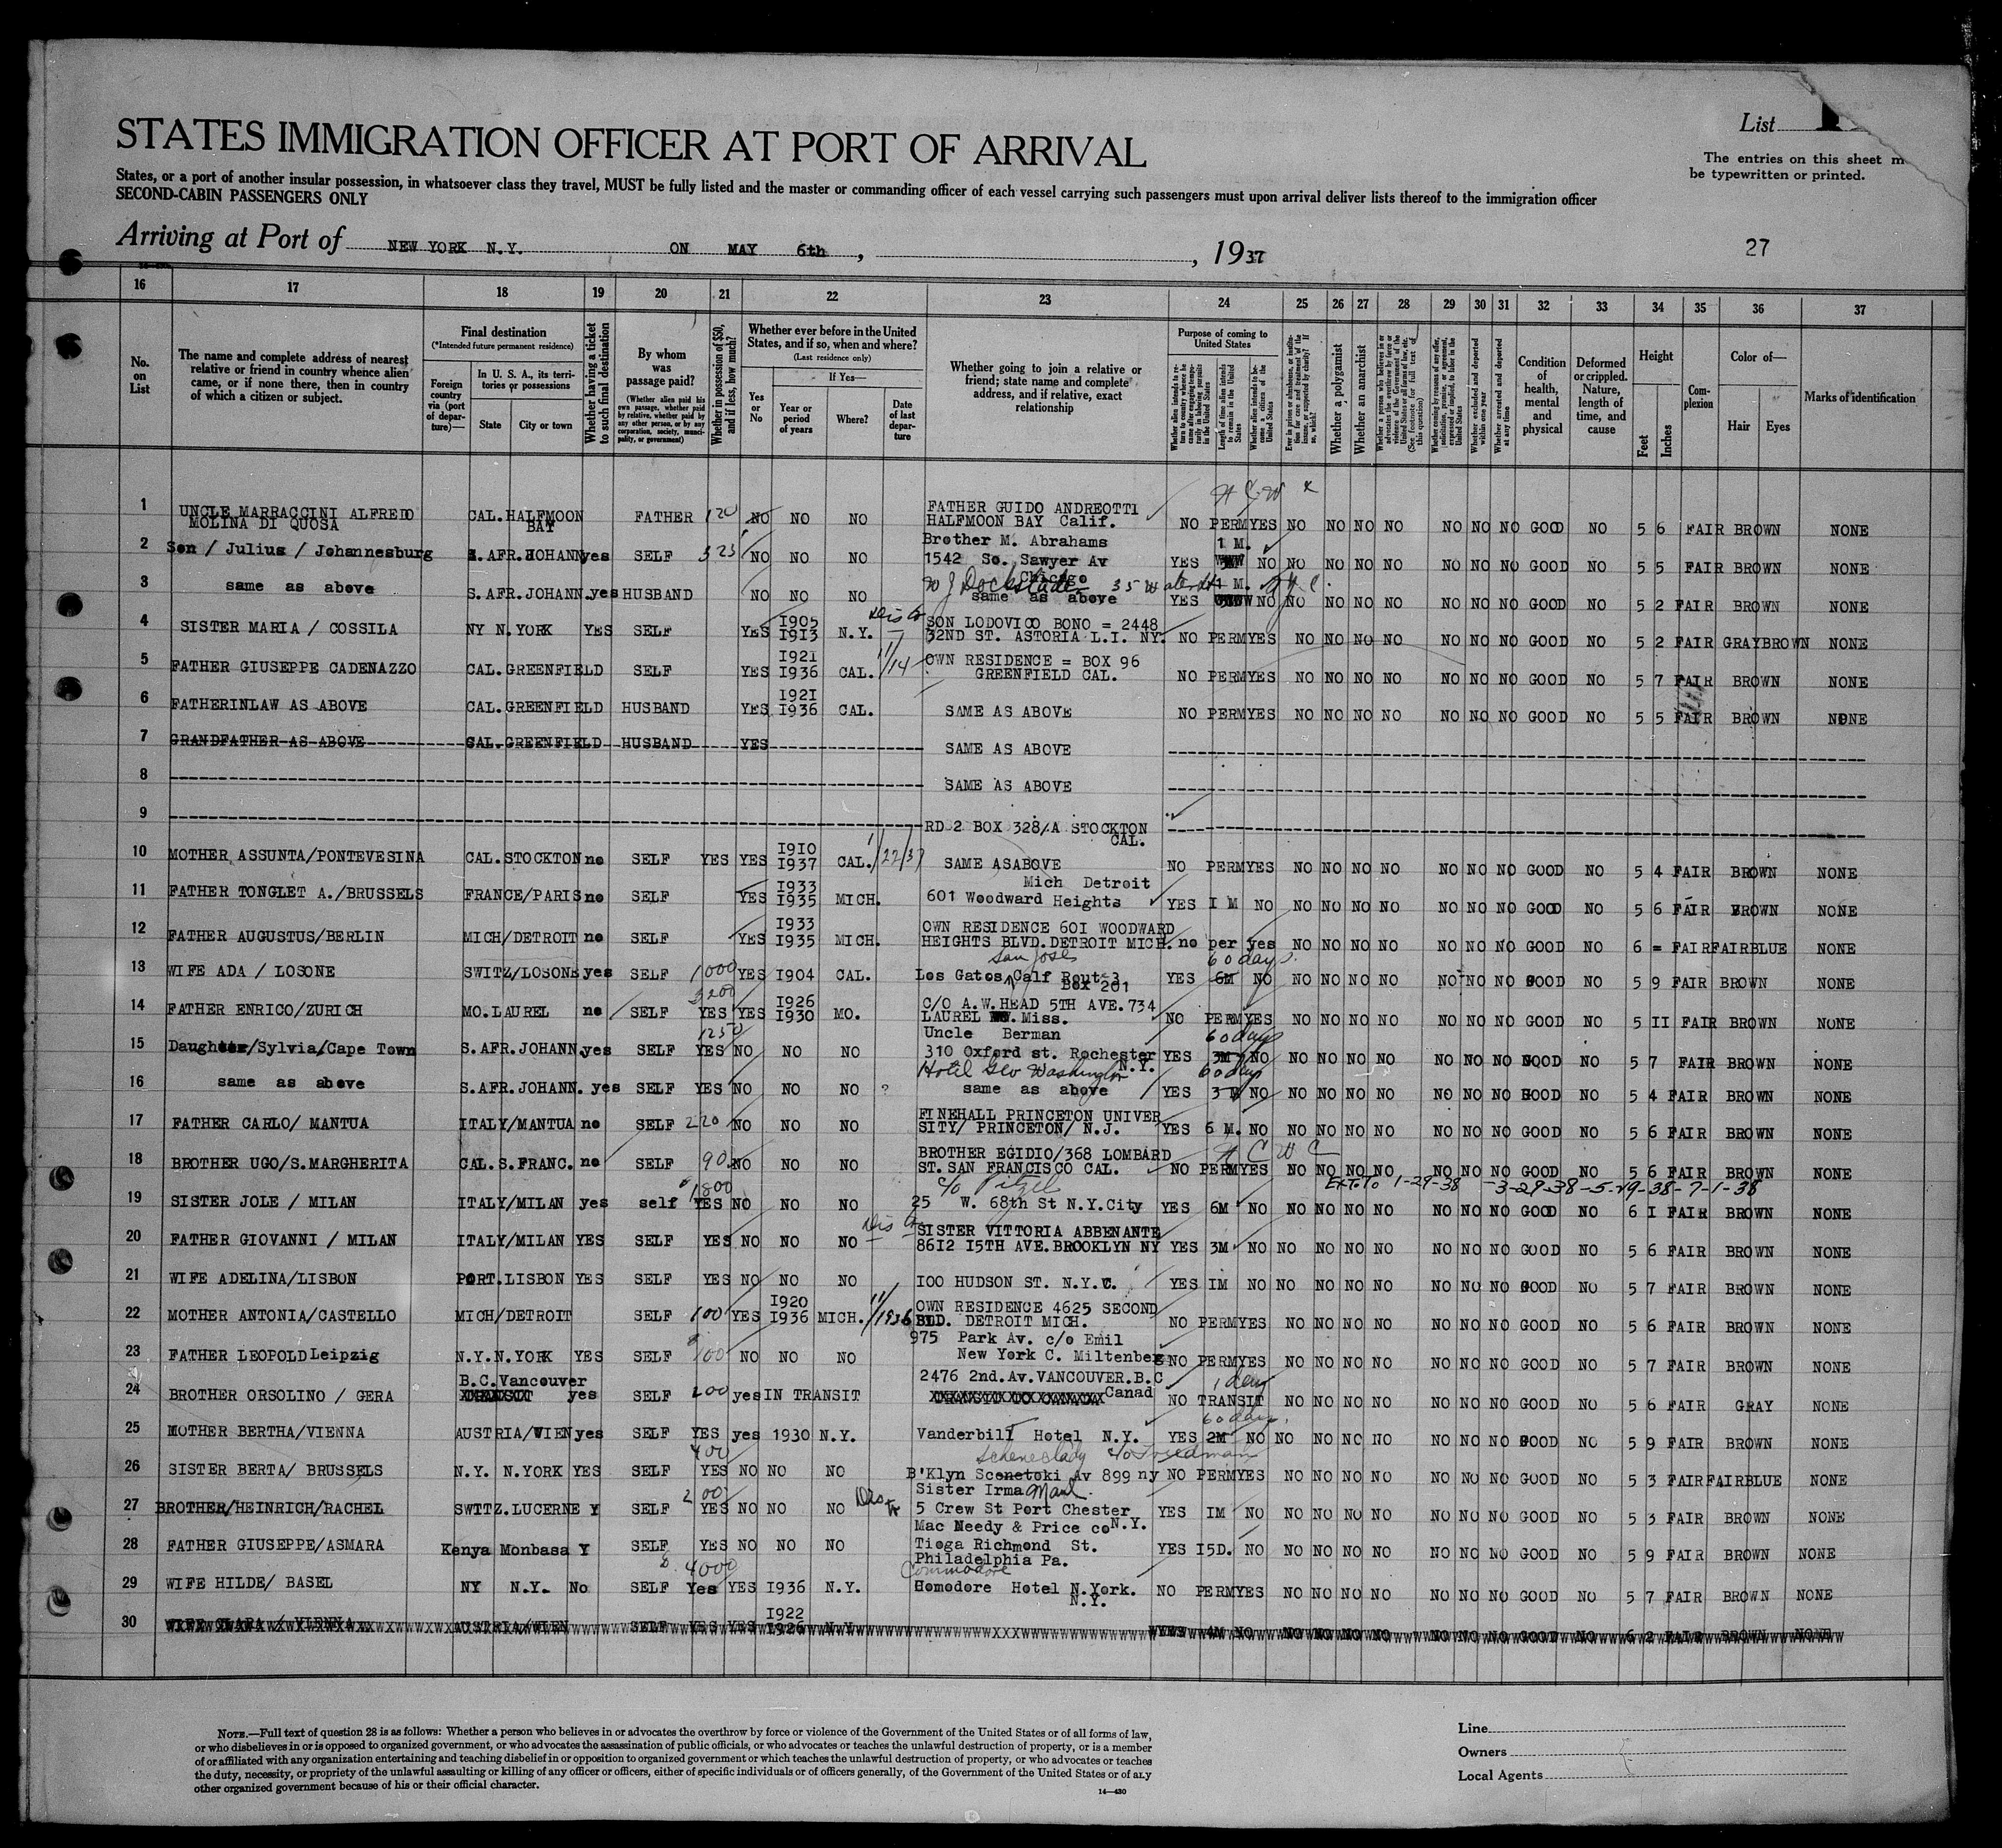 List
STATES IMMIGRATION OFFICER AT PORT OF ARRIVAL
The entries on this sheet m
be typewritten or printed.
States, or a port of another insular possession, in whatsoever class they travel, MUST be fully listed and the master or commanding officer of each vessel carrying such passengers must upon arrival deliver lists thereof to the immigration officer
SECOND-CABIN PASSENGERS ONLY
Arriving at Port of NEW YORK N.Y. ON MAY 6th, , 1937
27
16 17 18 19 20 21 22 23 24 25 26 27 28 29 30 31 32 33 34 35 36 37
No. on List
The name and complete address of nearest relative or friend in country whence alien came, or if none there, then in country of which a citizen or subject.
Final destination
(*Intended future permanent residence)
Foreign country via (port of departure)—
In U. S. A., its territories or possessions
State City or town
Whether having a ticket to such final destination
By whom was passage paid?
(Whether alien paid his own passage, whether paid by relative, whether paid by any other person, or by any corporation, society, municipality, or government)
Whether in possession of $50, and if less, how much?
Whether ever before in the United States, and if so, when and where?
(Last residence only)
Yes or No
If Yes—
Year or period of years
Where?
Date of last departure
Whether going to join a relative or friend; state name and complete address, and if relative, exact relationship
Purpose of coming to United States
Length of time alien intends to remain in the United States
Whether alien intends to become a citizen of the United States
Whether a polygamist
Whether an anarchist
Whether excluded and deported within one year
Whether arrested and deported at any time
Condition of health, mental and physical
Deformed or crippled. Nature, length of time, and cause
Height
Feet Inches
Complexion
Color of—
Hair Eyes
Marks of identification
1 UNCLE MARRACCINI ALFREDO MOLINA DI QUOSA CAL. HALFMOON BAY FATHER 120 NO NO NO FATHER GUIDO ANDREOTTI HALFMOON BAY Calif. NO PERM YES NO NO NO NO NO NO NO GOOD NO 5 6 FAIR BROWN NONE
2 Son / Julius / Johannesburg S.AFR. JOHANN yes SELF 325 NO NO NO Brother M. Abrahams 1542 So. Sawyer Av Chicago YES 1 M. NO NO NO NO NO NO NO NO GOOD NO 5 5 FAIR BROWN NONE
3 same as above S.AFR. JOHANN. yes HUSBAND NO NO NO same as above YES 1 M. NO NO NO NO NO NO NO NO GOOD NO 5 2 FAIR BROWN NONE
4 SISTER MARIA / COSSILA NY N.YORK YES SELF YES 1905 1913 N.Y. SON LODOVICO BONO = 2448 32ND ST. ASTORIA L.I. NY. NO PERM YES NO NO NO NO NO NO NO GOOD NO 5 2 FAIR GRAY BROWN NONE
5 FATHER GIUSEPPE CADENAZZO CAL. GREENFIELD SELF YES 1921 1936 CAL. 11/14 OWN RESIDENCE = BOX 96 GREENFIELD CAL. NO PERM YES NO NO NO NO NO NO NO GOOD NO 5 7 FAIR BROWN NONE
6 FATHERINLAW AS ABOVE CAL. GREENFIELD HUSBAND YES 1921 1936 CAL. SAME AS ABOVE NO PERM YES NO NO NO NO NO NO NO GOOD NO 5 5 FAIR BROWN NONE
7 GRANDFATHER AS ABOVE CAL. GREENFIELD HUSBAND YES SAME AS ABOVE
8 SAME AS ABOVE
9 RD 2 BOX 328/A STOCKTON CAL.
10 MOTHER ASSUNTA/PONTEVESINA CAL. STOCKTON no SELF YES YES 1910 1937 CAL. 1/22/37 SAME AS ABOVE NO PERM YES NO NO NO NO NO NO NO GOOD NO 5 4 FAIR BROWN NONE
11 FATHER TONGLET A./BRUSSELS FRANCE/PARIS no SELF YES 1933 1935 MICH. Mich Detroit 601 Woodward Heights YES I M NO NO NO NO NO NO NO NO GOOD NO 5 6 FAIR BROWN NONE
12 FATHER AUGUSTUS/BERLIN MICH/DETROIT no SELF YES 1933 1935 MICH. OWN RESIDENCE 601 WOODWARD HEIGHTS BLVD. DETROIT MICH. no per yes NO NO NO NO NO NO NO GOOD NO 6 = FAIR FAIR BLUE NONE
13 WIFE ADA / LOSONE SWITZ/LOSONE yes SELF 1000 YES 1904 CAL. San Jose Los Gatos Calf Rout 3 Box 201 YES 6M 60 days. NO NO NO NO NO NO NO NO GOOD NO 5 9 FAIR BROWN NONE
14 FATHER ENRICO/ZURICH MO. LAUREL no SELF 3200 YES YES 1926 1930 MO. C/O A.W. HEAD 5TH AVE. 734 LAUREL Miss. NO PERM YES NO NO NO NO NO NO NO GOOD NO 5 II FAIR BROWN NONE
15 Daughter/Sylvia/Cape Town S.AFR. JOHANN. yes SELF 1250 YES NO NO NO Uncle Berman 310 Oxford st. Rochester N.Y. YES 3M 60 days NO NO NO NO NO NO NO NO GOOD NO 5 7 FAIR BROWN NONE
16 same as above S.AFR. JOHANN. yes SELF YES NO NO NO ? Hotel Geo Washington same as above YES 3 M 60 days NO NO NO NO NO NO NO NO GOOD NO 5 4 FAIR BROWN NONE
17 FATHER CARLO/ MANTUA ITALY/MANTUA no SELF 220 NO NO NO FINEHALL PRINCETON UNIVERSITY/ PRINCETON/ N.J. YES 6 M. NO NO NO NO NO NO NO NO GOOD NO 5 6 FAIR BROWN NONE
18 BROTHER UGO/S.MARGHERITA CAL. S.FRANC. no SELF 90 NO NO NO BROTHER EGIDIO/368 LOMBARD ST. SAN FRANCISCO CAL. NO PERM YES NO NO NO NO NO NO NO GOOD NO 5 6 FAIR BROWN NONE
Ext to 1-29-38 -3-29-38-5-29-38-7-1-38
19 SISTER JOLE / MILAN ITALY/MILAN yes self 1800 YES NO NO NO c/o Pitzel 25 W. 68th St N.Y.City YES 6M NO NO NO NO NO NO NO NO GOOD NO 6 I FAIR BROWN NONE
20 FATHER GIOVANNI / MILAN ITALY/MILAN YES SELF YES NO NO NO SISTER VITTORIA ABBENANTE 8612 15TH AVE. BROOKLYN NY YES 3M NO NO NO NO NO NO NO NO GOOD NO 5 6 FAIR BROWN NONE
21 WIFE ADELINA/LISBON PORT. LISBON YES SELF YES NO NO NO 100 HUDSON ST. N.Y.C. YES IM NO NO NO NO NO NO NO NO GOOD NO 5 7 FAIR BROWN NONE
22 MOTHER ANTONIA/CASTELLO MICH/DETROIT SELF 100 YES 1920 1936 MICH. 11/1936 OWN RESIDENCE 4625 SECOND BLD. DETROIT MICH. NO PERM YES NO NO NO NO NO NO NO GOOD NO 5 6 FAIR BROWN NONE
23 FATHER LEOPOLD Leipzig N.Y. N.YORK YES SELF 100 NO NO NO 975 Park Av. c/o Emil New York C. Miltenberg NO PERM YES NO NO NO NO NO NO NO GOOD NO 5 7 FAIR BROWN NONE
24 BROTHER ORSOLINO / GERA B.C. Vancouver yes SELF 200 yes IN TRANSIT 2476 2nd. Av. VANCOUVER. B.C Canad 1 day NO TRANSIT NO NO NO NO NO NO NO GOOD NO 5 6 FAIR GRAY NONE
25 MOTHER BERTHA/VIENNA AUSTRIA/WIEN yes SELF YES yes 1930 N.Y. Vanderbilt Hotel N.Y. YES 2M 60 days. NO NO NO NO NO NO NO NO GOOD NO 5 9 FAIR BROWN NONE
26 SISTER BERTA/ BRUSSELS N.Y. N.YORK YES SELF 400 YES NO NO NO Scheneslady c/o Friedman B'Klyn Sconetoki Av 899 ny NO PERM YES NO NO NO NO NO NO NO GOOD NO 5 3 FAIR FAIR BLUE NONE
27 BROTHER/HEINRICH/RACHEL SWITZ. LUCERNE Y SELF 200 YES NO NO NO Sister Irma Maul. 5 Crew St Port Chester N.Y. YES IM NO NO NO NO NO NO NO NO GOOD NO 5 3 FAIR BROWN NONE
28 FATHER GIUSEPPE/ASMARA Kenya Monbasa Y SELF YES NO NO NO Mac Needy & Price co Tioga Richmond St. Philadelphia Pa. YES I5D. NO NO NO NO NO NO NO NO GOOD NO 5 9 FAIR BROWN NONE
29 WIFE HILDE/ BASEL NY N.Y. No SELF 4000 Yes YES 1936 N.Y. Commodore Homodore Hotel N.York. N.Y. NO PERM YES NO NO NO NO NO NO NO GOOD NO 5 7 FAIR BROWN NONE
30 WIFE CLARA / VIENNA AUSTRIA/WIEN SELF YES YES 1922 1926 N.Y. YES 4M NO NO NO NO NO NO NO NO GOOD NO 6 2 FAIR BROWN NONE
NOTE.—Full text of question 28 is as follows: Whether a person who believes in or advocates the overthrow by force or violence of the Government of the United States or of all forms of law,
or who disbelieves in or is opposed to organized government, or who advocates the assassination of public officials, or who advocates or teaches the unlawful destruction of property, or is a member
of or affiliated with any organization entertaining and teaching disbelief in or opposition to organized government or which teaches the unlawful destruction of property, or who advocates or teaches
the duty, necessity, or propriety of the unlawful assaulting or killing of any officer or officers, either of specific individuals or of officers generally, of the Government of the United States or of any
other organized government because of his or their official character.
14—430
Line
Owners
Local Agents